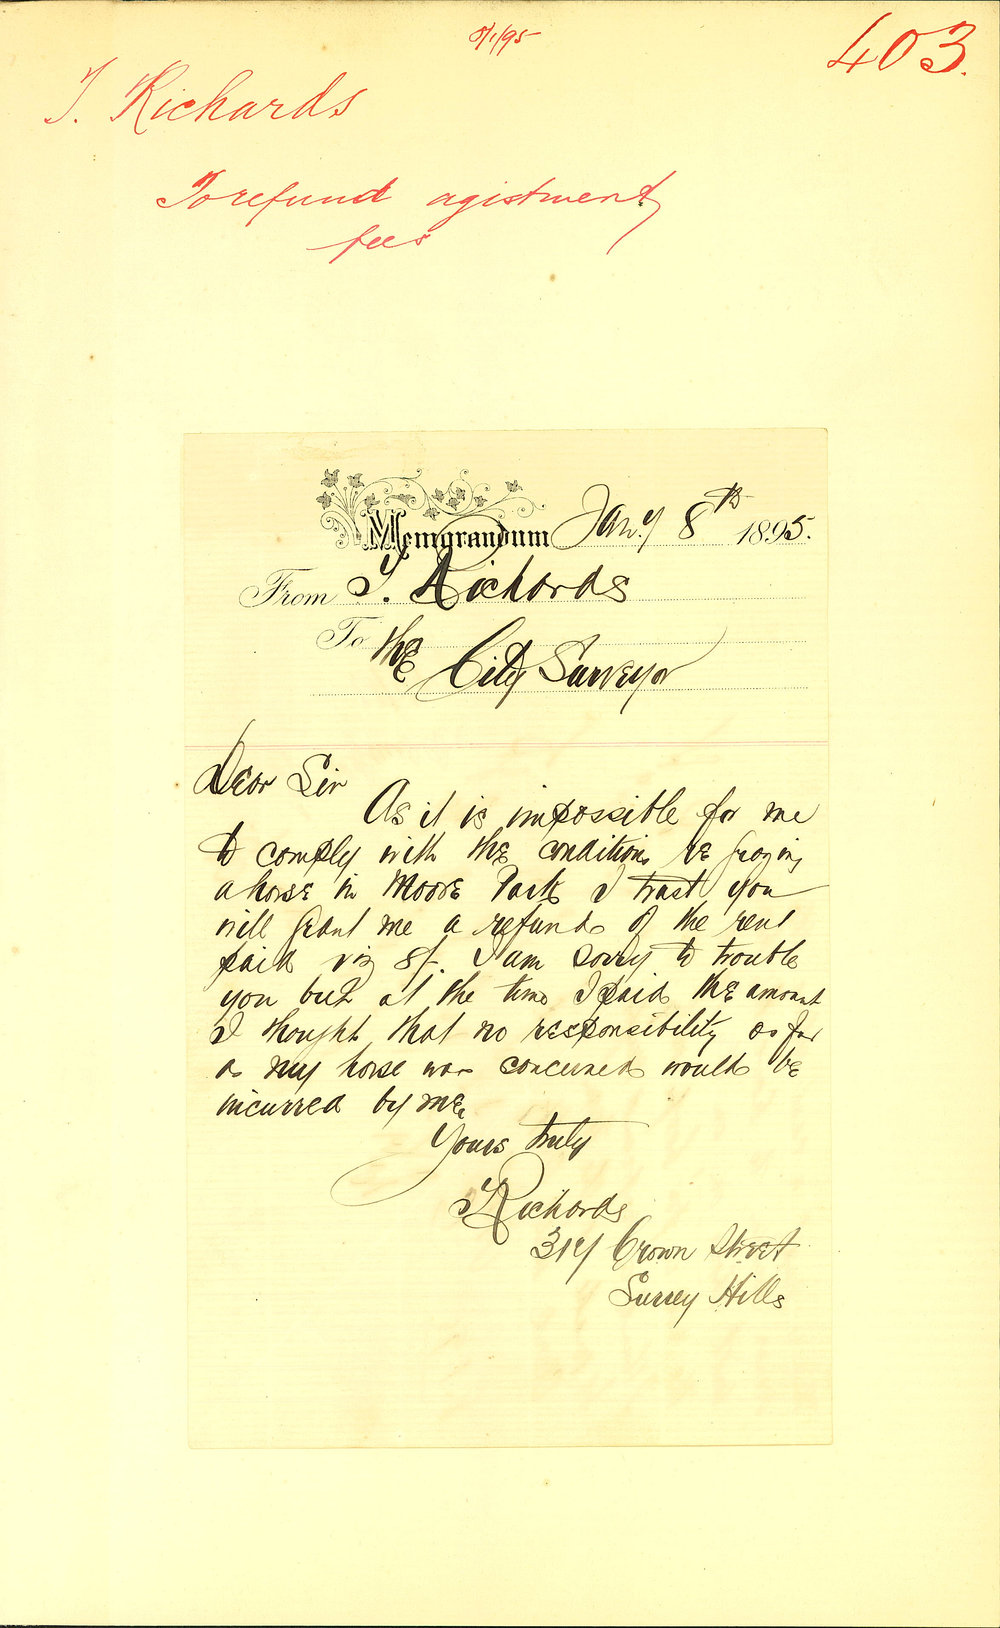 8/1/95
403.
T. Richards
To refund agistment
fees
Memorandum Jany 8th 1895.
From T. Richards
To the City Surveyor
Dear Sir
As it is impossible for me
to comply with the conditions re grazing
a horse in Moore Park I trust you
will grant me a refund of the rent
paid viz 8/-. I am sorry to trouble
you but at the time I paid the amount
I thought that no responsibility as far
as my horse was concerned would be
incurred by me,
Yours truly
T Richards
Crown Street
Surrey Hills